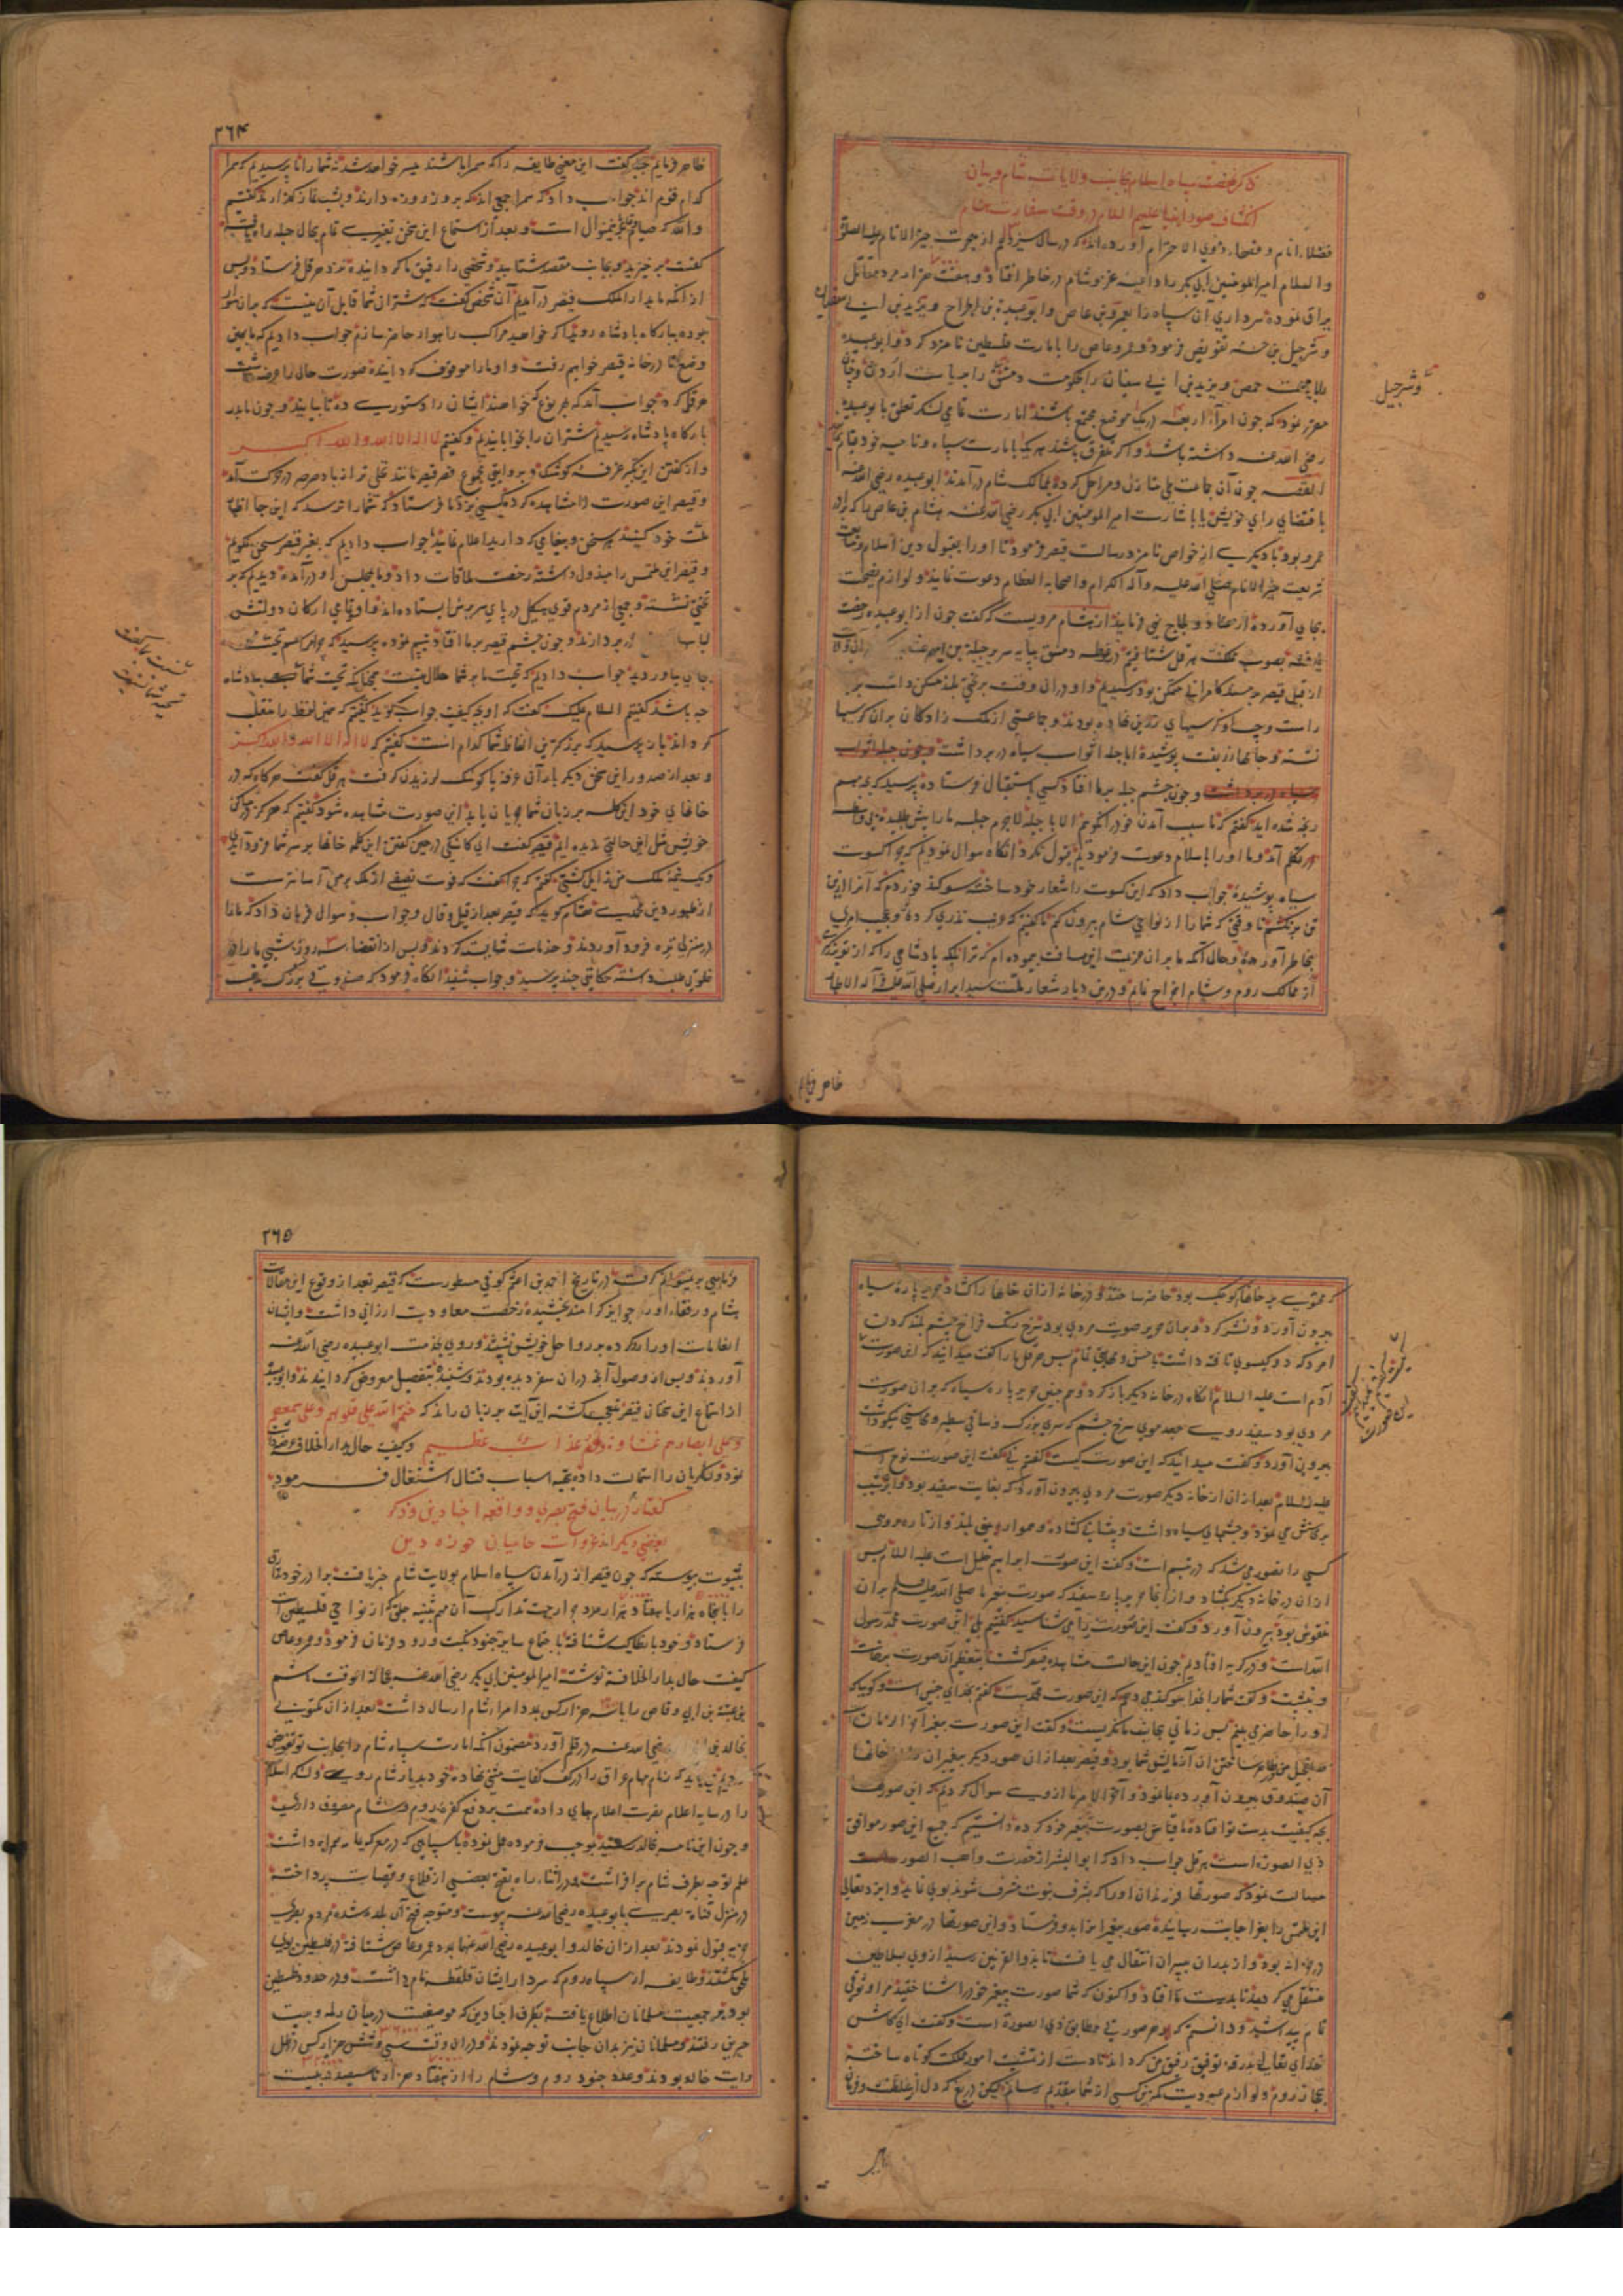 ذکر نهضت سپاه اسلام بجانب ولایات شام و بیان
انکشاف صور انبیا علیهم السلام در وقت سفارت هشام
فضلاء انام و فصحاء ذوی الاحترام آورده‌اند که در سال سیزدهم از هجرت خیر الانام علیه الصلوة
والسلام امیر المومنین ابی بکر را داعیه غزو شام در خاطر افتاد و هفت هزار مرد مقاتل
یراق نموده سرداری آن سپاه را بعمرو بن عاص و ابو عبیدة بن الجراح و یزید بن ابی سفیان
و شرجیل بن حسنه تفویض فرمود و عمرو عاص را بامارت فلسطین نامزد کرد و ابو عبیده
حمص و یزید بن ابی سفیان را بحکومت دمشق
مقرر نمود که چون امراء اربعه در یک موضع مجتمع باشند امارت تمامی لشکر تعلق بابو عبیده
رضی الله عنه داشته باشد و اگر متفرق باشند هر یک بامارت سپاه و ناحیه خود قیام نماید
القصه چون آن جماعت طی منازل و مراحل کرده بممالک شام در آمدند ابو عبیده رضی الله عنه
باقتضای رای خویش یا باشارت امیر المومنین ابی بکر رضی الله عنه هشام بن عاص را که برادر
عمرو بود با دیگری از خواص نامزد رسالت قیصر فرمود تا او را بقبول دین اسلام و متابعت
شریعت خیر الانام صلی الله علیه و آله الکرام و اصحابه العظام دعوت نماید و لوازم نصیحت
بجای آورده از عناد و لجاج نهی فرماید از هشام مرویست که گفت چون از ابو عبیده رخصت
یافته بصوب مملکت هرقل شتافتیم در غوطه دمشق بپایه سریر جبلة بن ایهم غسانی
از قبل قیصر بر مسند کامرانی متمکن بود رسیدیم و او در آن وقت بر تختی بلند مسکن داشت بر
راست و چپ او کرسیهای زرین نهاده بودند و جماعتی از ملک زادگان بران کرسیها
نشسته و جامهای زربفت پوشیده اما جبله اثواب سیاه در بر داشت
و چون چشم جبله بر ما افتاد کسی باستقبال فرستاده پرسید که بچه مهم
رنجه شده اید گفتیم که ما سبب آمدن خود را نگوییم الا با جبله لاجرم جبله ما را پیش طلبیده بی واسطه
در تکلم آمد و ما او را باسلام دعوت فرمودیم قبول نکرد آنگاه سوال نمودیم که چرا کسوت
سیاه پوشیده جواب داد که این کسوت را شعار خود ساخته سوگند خورده‌ام که آنرا ازین
تن نرنکشم تا وقتی که شما را از نواحی شام بیرون کنم ما گفتیم که عجب نذری کرده و عجب امری
بخاطر آورده و حال آنکه ما بر آن عزیمت این مسافت پیموده‌ایم که ترا بلکه پادشاهی را که از تو بزرگتر
از ممالک روم و شام اخراج نماییم و درین دیار شعار ملت سید ابرار صلی الله علیه و آله الاطهار
وشرجیل
ظاهر فرماییم
۲۶۴
ظاهر فرماییم جبله گفت این معنی طایفه را که سمرا باشند میسر خواهد شد نه شما را ما پرسیدیم که سمرا
کدام قوم اند جواب داد که سمرا جمعی اند که بروز روزه دارند و بشب نماز گذارند گفتیم
والله که صیام و قیام ما برین منوال است و بعد از استماع این سخن تغییری تمام بحال جبله راه یافته
گفت برخیزید و بجانب مقصد شتابید و شخصی را رفیق ما گردانیده نزد هرقل فرستاد و پس
از آنکه ما بدار الملک قیصر در آمدیم آن شخص گفت که شتران شما قابل آن نیست که بران سوار
بوده ببارگاه پادشاه روید اگر خواهید مراکب راهوار حاضر سازم جواب دادیم که ما بهمین
وضع تا در خانه قیصر خواهیم رفت و او ما را موقوف گردانیده صورت حال را عرضه داشت
هرقل کرد جواب آمد که بهر نوع که خواهند ایشان را دستوری ده تا بیایند و چون ما بدر
بارگاه پادشاه رسیدیم شتران را بخوابانیدیم و گفتیم لا اله الا الله والله اکبر
و از گفتن این تکبیر غرفه کوشک و بروایتی مجموع قصر قیصر مانند نخلی تر از باد صرصر در حرکت آمد
و قیصر این صورت را مشاهده کرده کسی نزد ما فرستاد که شما را نرسد که این جا اظهار
ملت خود کنید هر سخن و پیغامی که دارید اعلام نمایید جواب دادیم که بغیر قیصر سخن نگوییم
و قیصر این ملتمس را مبذول داشته رخصت ملاقات داد و ما بمجلس او در آمده دیدیم که بر
تختی نشسته و جمعی از مردم قوی هیکل در پای سریرش ایستاده‌اند و او و تمامی ارکان دولتش
لباس در بر دارند و چون چشم قیصر بر ما افتاد تبسم نموده پرسید که چرا مراسم تحیت
بجای نیاوردید جواب دادیم که تحیت ما بر شما حلال نیست همچنانکه تحیت شما
چه باشد گفتیم السلام علیک گفت که او بچه کیفیت جواب گوید گفتیم که همین لفظ را منقلب
گرداند باز پرسید که بزرگترین الفاظ شما کدام است گفتیم که لا اله الا الله والله اکبر
و بعد از صدور این سخن دیگر بار آن غرفه یا کوشک لرزیدن گرفت هرقل گفت هرگاه که در
خانهای خود این کلمه بر زبان شما جریان یابد این صورت مشاهده شود گفتیم که هرگز در مساکن
خویش مثل این حالتی ندیده‌ایم قیصر گفت ای کاشکی در حین گفتن این کلمه خانها بر سر شما فرود آیدی
و یک نیمه ملک من زایل گشتی گفتیم که چرا گفت که فوت نصفی از ملک بر من آسانترست
از ظهور دین محمدی هشام گوید که قیصر بعد از قیل و قال و جواب و سوال فرمان داد که ما را
در منزلی نزه فرود آوردند و خدمات شایسته کردند و پس از انقضاء سه روز شبی ما را در
خلوتی طلب داشته حکایتی چند پرسید و جواب شنید آنگاه فرمود که صندوقی بزرگ مذهب
که محتوی بر خانهای کوچک بود حاضر ساختند و در خانه از آن خانها را گشاد حریر پاره سیاه
بیرون آورد و نشر کرد و بر آن حریر صورت مردی بود سرخ رنگ فراخ چشم بلند گردن
امرد که دو گیسوی تافته داشت با حسن و بهجتی تمام پس هرقل با ما گفت میدانید که این صورت
آدم است علیه السلام آنگاه در خانه دیگر باز کرد و هم چنین حریر پاره سیاه که بر آن صورت
مردی بود سفید روی جعد موی سرخ چشم که سری بزرگ و ساقی سطبر و محاسنی نیکو داشت
بیرون آورد و گفت میدانید که این صورت کیست گفتیم نی گفت این صورت نوح است
علیه السلام بعد از آن از خانه دیگر صورت مردی بیرون آورد که بغایت سفید بود و اثر شیب
بر محاسنش می نمود و چشمهای سیاه داشت و پیشانی گشاده و هموار و بینی بلند و از تازه رویی
کسی را تصور می شد که در تبسم است و گفت این صورت ابراهیم خلیل است علیه السلام پس
از آن در خانه دیگر بگشاد و از آنجا حریر پاره سفید که صورت پیغمبر ما صلی الله علیه و سلم بر آن
منقوش بود بیرون آورد و گفت این صورت را می شناسید گفتیم بلی این صورت محمد رسول
الله است و در گریه افتادیم چون این حالت مشاهده قیصر گشت بتعظیم آن صورت برخاست
و بنشست و گفت شما را بخدا سوگند می دهم که این صورت محمدست گفتیم بخدای چنین است و گوییا که
او را حاضر می بینیم پس زمانی بجانب ما نگریست و گفت این صورت پیغمبر آخر الزمان است
تعجیل من در ظاهر ساختن آن آزمایش شما بود و قیصر بعد از آن صور دیگر پیغمبران از خانها
آن صندوق بیرون آورده بما نمود و آخر الامر ما از وی سوال کردیم که این صورتها
بچه کیفیت بدست تو افتاده ما قیاس بصورت پیغمبر خود کرده دانستیم که جمیع این صور موافق
ذی الصورة است هرقل جواب داد که ابو البشر از حضرت واهب الصور
مسالت نمود که صورتهای فرزندان او را که بشرف نبوت مشرف شوند بوی نماید و ایزد تعالی
این ملتمس را بعز اجابت رسانیده صور پیغمبران بدو فرستاد و این صورتها در مغرب زمین
در خزانه بود و از پدران بپسران انتقال می یافت تا بذوالقرنین رسید از وی بسلاطین
منتقل می گردید تا بدست ما افتاد و اکنون که شما صورت پیغمبر خود را شناختید مرا وثوقی
تمام پیدا شد و دانستم که هر صورتی مطابق ذی الصورة است و گفت ای کاش
خدای تعالی بدرقه توفیق رفیق من گرداند تا دست از تشبث امور مملکت کوتاه ساخته
بحجاز روم و لوازم عبودیت کمترین کسی از شما بتقدیم رسانم لیکن دریغ که دل از سلطنت
۲۶۵
و در تاریخ احمد بن اعثم کوفی مسطورست که قیصر بعد از وقوع این مقالات
هشام و رفقاء او را جوایز گرامند بخشیده رخصت معاودت ارزانی داشت و ایشان
انعامات او را رد کرده بر رواحل خویش نشستند و روی بخدمت ابو عبیده رضی الله عنه
آوردند و پس از وصول آنچه در آن سفر دیده بودند و شنیده بتفصیل معروض گردانیدند و ابو عبیده
از استماع این سخنان قیصر متعجب گشته این آیت بر زبان راند که ختم الله علی قلوبهم وعلی سمعهم
وعلی ابصارهم غشاوة ولهم عذاب عظیم و کیفیت حال بدار الخلافة عرضه داشت
نموده لشکریان را استمالت داده بتهیه اسباب قتال اشتغال فرمود
گفتار در بیان فتح بصری و واقعه اجنادین و ذکر
بعضی دیگر از غزوات حامیان حوزه دین
بثبوت پیوسته که چون قیصر از در آمدن سپاه اسلام بولایت شام خبر یافت برادر خود
را با پنجاه هزار یا هفتاد هزار مرد جرار جهت تدارک آن مهم بثنیه جلق که از نواحی فلسطین است
فرستاد و خود بانطاکیه شتافته باجتماع سایر جنود نکبت ورود فرمان فرمود و عمرو عاص
کیفیت حال بدار الخلافة نوشته امیر المومنین ابی بکر رضی الله عنه بعجالة الوقت هاشم
بن عتبة بن ابی وقاص را با سه هزار کس بمدد امراء شام ارسال داشت بعد از آن مکتوبی
بخالد بن رضی الله عنه در قلم آورد مضمون آنکه امارت سپاه شام را بجانب تو تفویض
باید که زمام مهام عراق را در کف کفایت مثنی نهاده خود بدیار شام روی و لشکر اسلام
را در سایه اعلام نصرت اعلام جای داده همت بر دفع کفره روم و شام مصروف داری
و چون این نامه بخالد رسید بموجب فرموده عمل نموده با سپاهی که در معرکه یمامه همراه داشت
علم توجه بطرف شام بر افراشت و در اثناء راه بفتح بعضی از قلاع و قصبات پرداخته
در منزل قناة بصری بابو عبیده رضی الله عنه پیوست و متوجه فتح آن بلده شده مردم بصری
جزیه قبول نمودند بعد از آن خالد و ابو عبیده رضی الله عنهما بمدد عمرو عاص شتافته در فلسطین بوی
ملحق گشتند و طایفه از سپاه روم که سردار ایشان قلقط نام داشت و در حدود فلسطین
بودند بر جمعیت مسلمانان اطلاع یافته بطرف اجنادین که موضعیست در میان رمله و بیت
جبرین رفتند و مسلمانان نیز بدان جانب توجه نمودند و در آن وقت سی و شش هزار کس در ظل
رایت خالد بودند و عدد جنود روم و شام را از هفتاد هزار تا سیصد